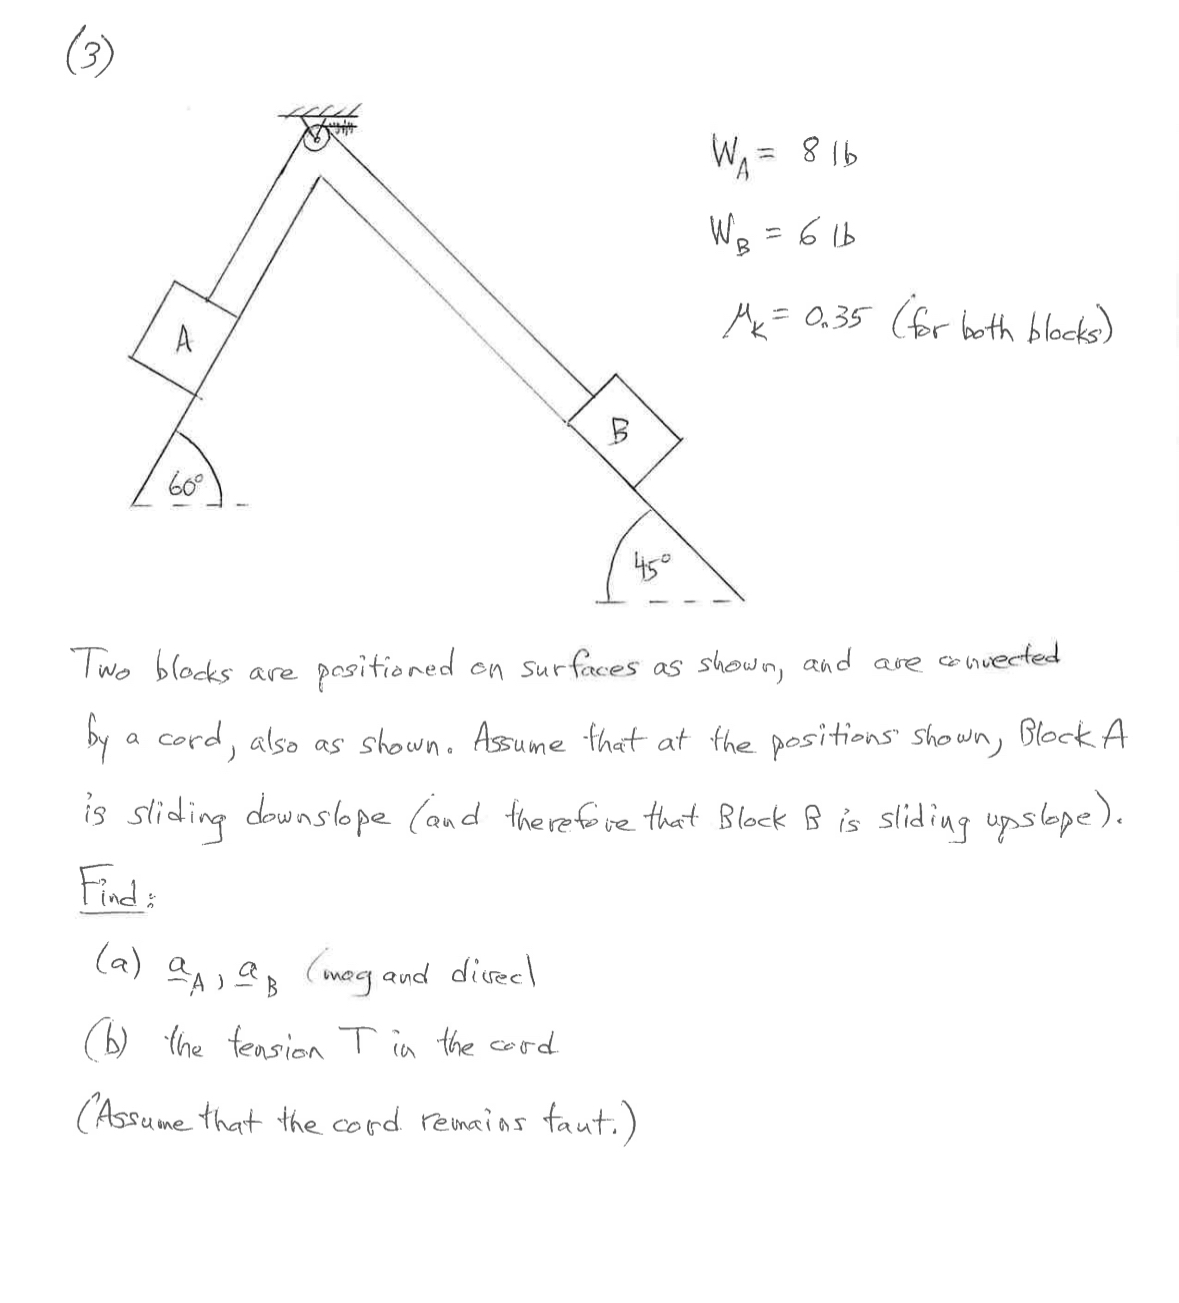 (3)
W_A = 8 lb
W_B = 6 lb
μ_K = 0.35 (for both blocks)
A
B
60°
45°
Two blocks are positioned on surfaces as shown, and are connected
by a cord, also as shown. Assume that at the positions shown, Block A
is sliding downslope (and therefore that Block B is sliding upslope).
Find:
(a) a_A, a_B (mag and direc)
(b) the tension T in the cord
(Assume that the cord remains taut.)